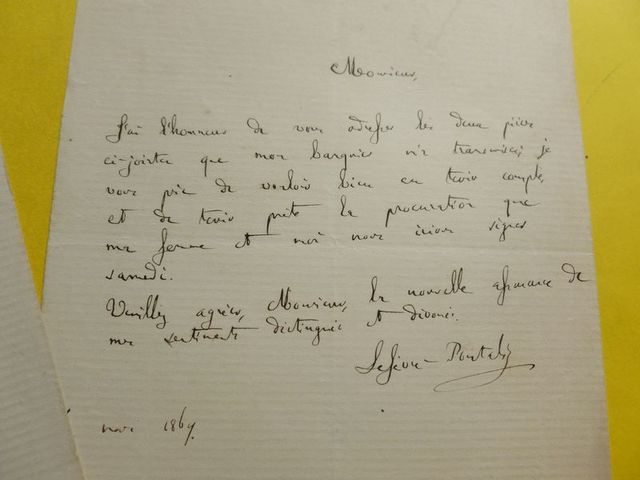 Monsieur,
J'ai l'honneur de vous adresser les deux pièces
ci-jointes que mon banquier m'a transmises, je
vous prie de vouloir bien en tenir compte,
et de tenir prête la procuration que
ma femme et moi nous irions signer
samedi.
Veuillez agréer, Monsieur, la nouvelle assurance de
mes sentiments distingués et dévoués.
Lefèvre-Pontalis
186